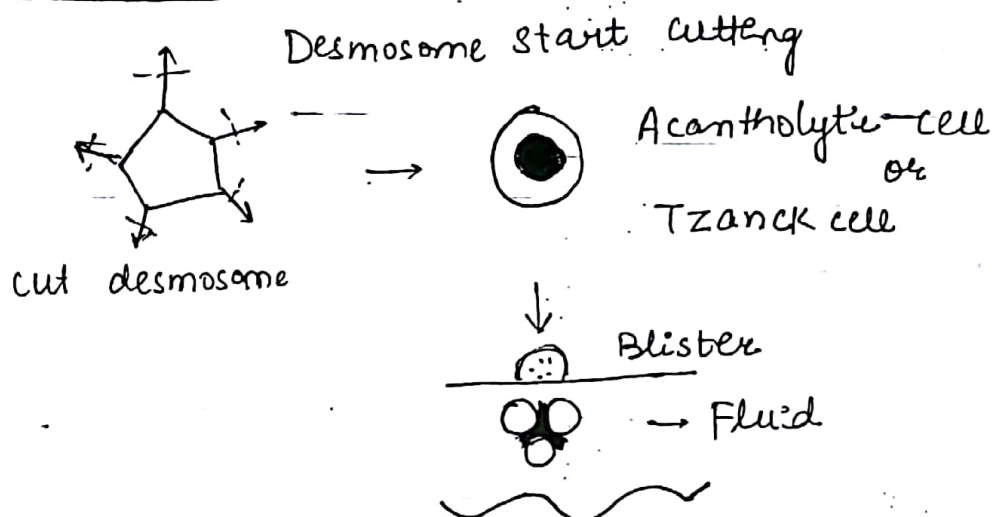 Desmosome start cutting
Acantholytic cell
or
Tzanck cell
cut desmosome
Blister
Fluid